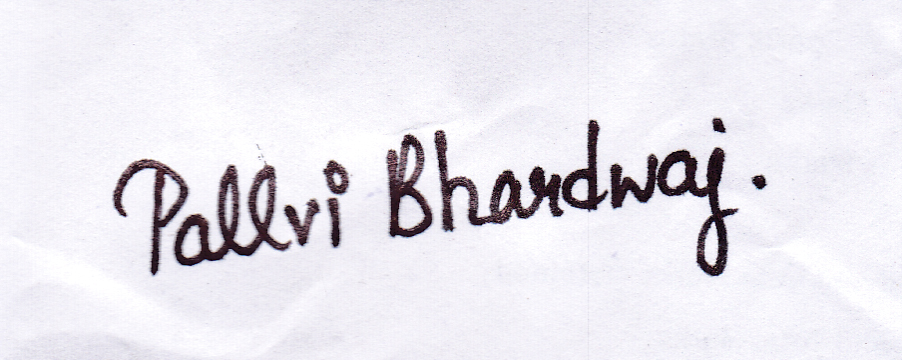 Pallvi Bhardwaj.